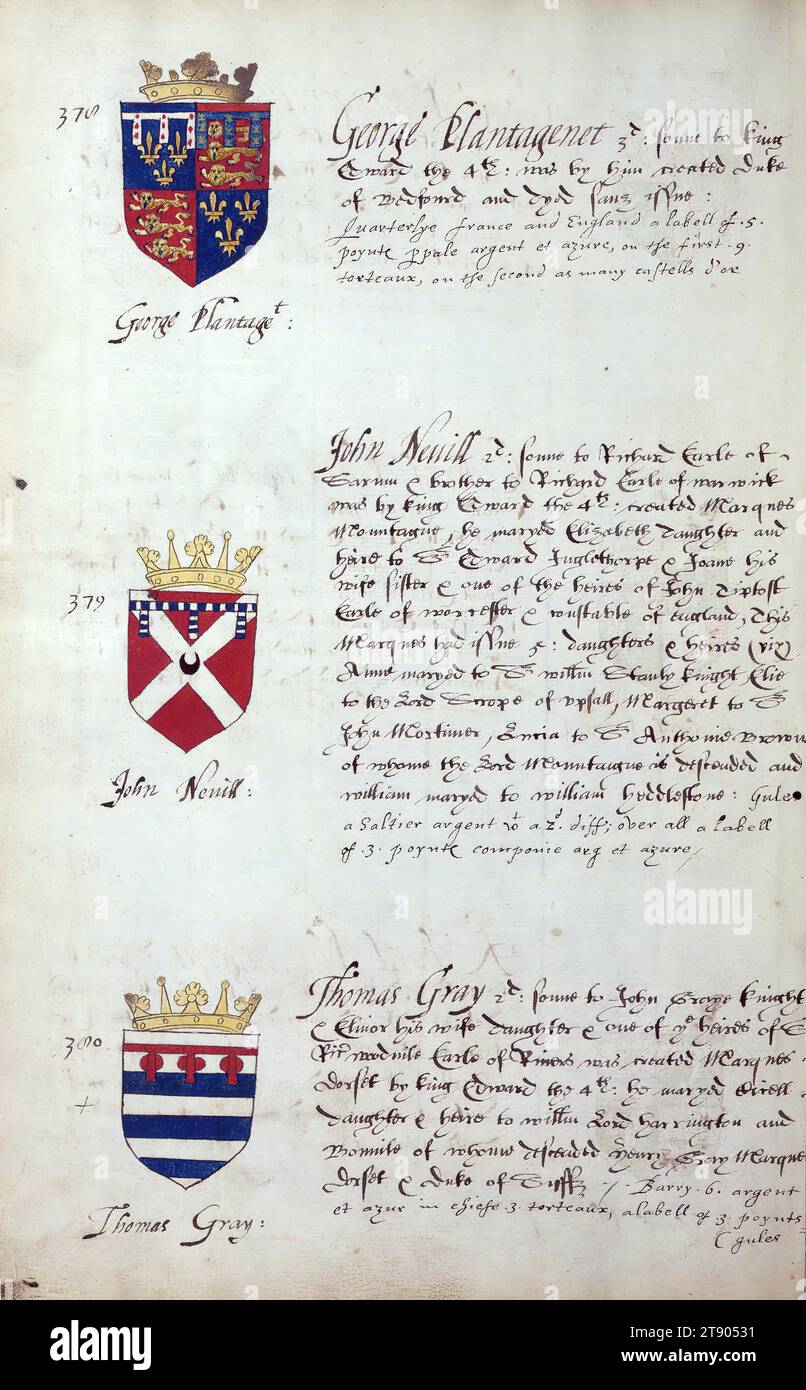 378
George Plantagenet 3d: sonne to King
Edward the 4th: was by him created Duke
of Bedford and dyed sanz issue:
Quarterlye france and England a labell of .5.
poynts p pale argent et azure, on the first .9.
torteaux, on the second as many castells d'or
George Plantaget:
John Nevill 2d: sonne to Richard Earle of
Sarum & brother to Richard Earle of warwick
was by King Edward the 4th: created Marques
Mountague, he maryed Elizabeth daughter and
heire to Sr Edward Inglethorpe & Joane his
wife sister & one of the heires of John Tiptost
Earle of worcester & constable of England, This
Marques had issue 5: daughters & heires (viz)
Anne maryed to Sr willm Stanly knight, Elie
to the Lord Scrope of vpsall, Margeret to Sr
John Mortimer, Lucia to Sr Anthonie Brown
of whome the Lord Mountaigue is descended and
william maryed to william Heddlestone: Gules
a Saltier argent wt a 2d diff; over all a labell
of .3. poynts componie arg et azure
379
John Nevill:
Thomas Gray 2d: sonne to John Graye Knight
& Elinor his wife daughter & one of ye heires of S
Ric: wodvile Earle of Rivers was created Marques
dorset by King Edward the 4th: he maryed Cicell
daughter & heire to willm Lord Harrington and
Bonvile of whome descended Henry Gray Marque
dorset & duke of Suff / Barry .6. argent
et azur in chiefe .3. torteaux, a labell of .3. poynts
gules
380
Thomas Gray:
alamy
alamy
alamy
Image ID: 2T90531
www.alamy.com